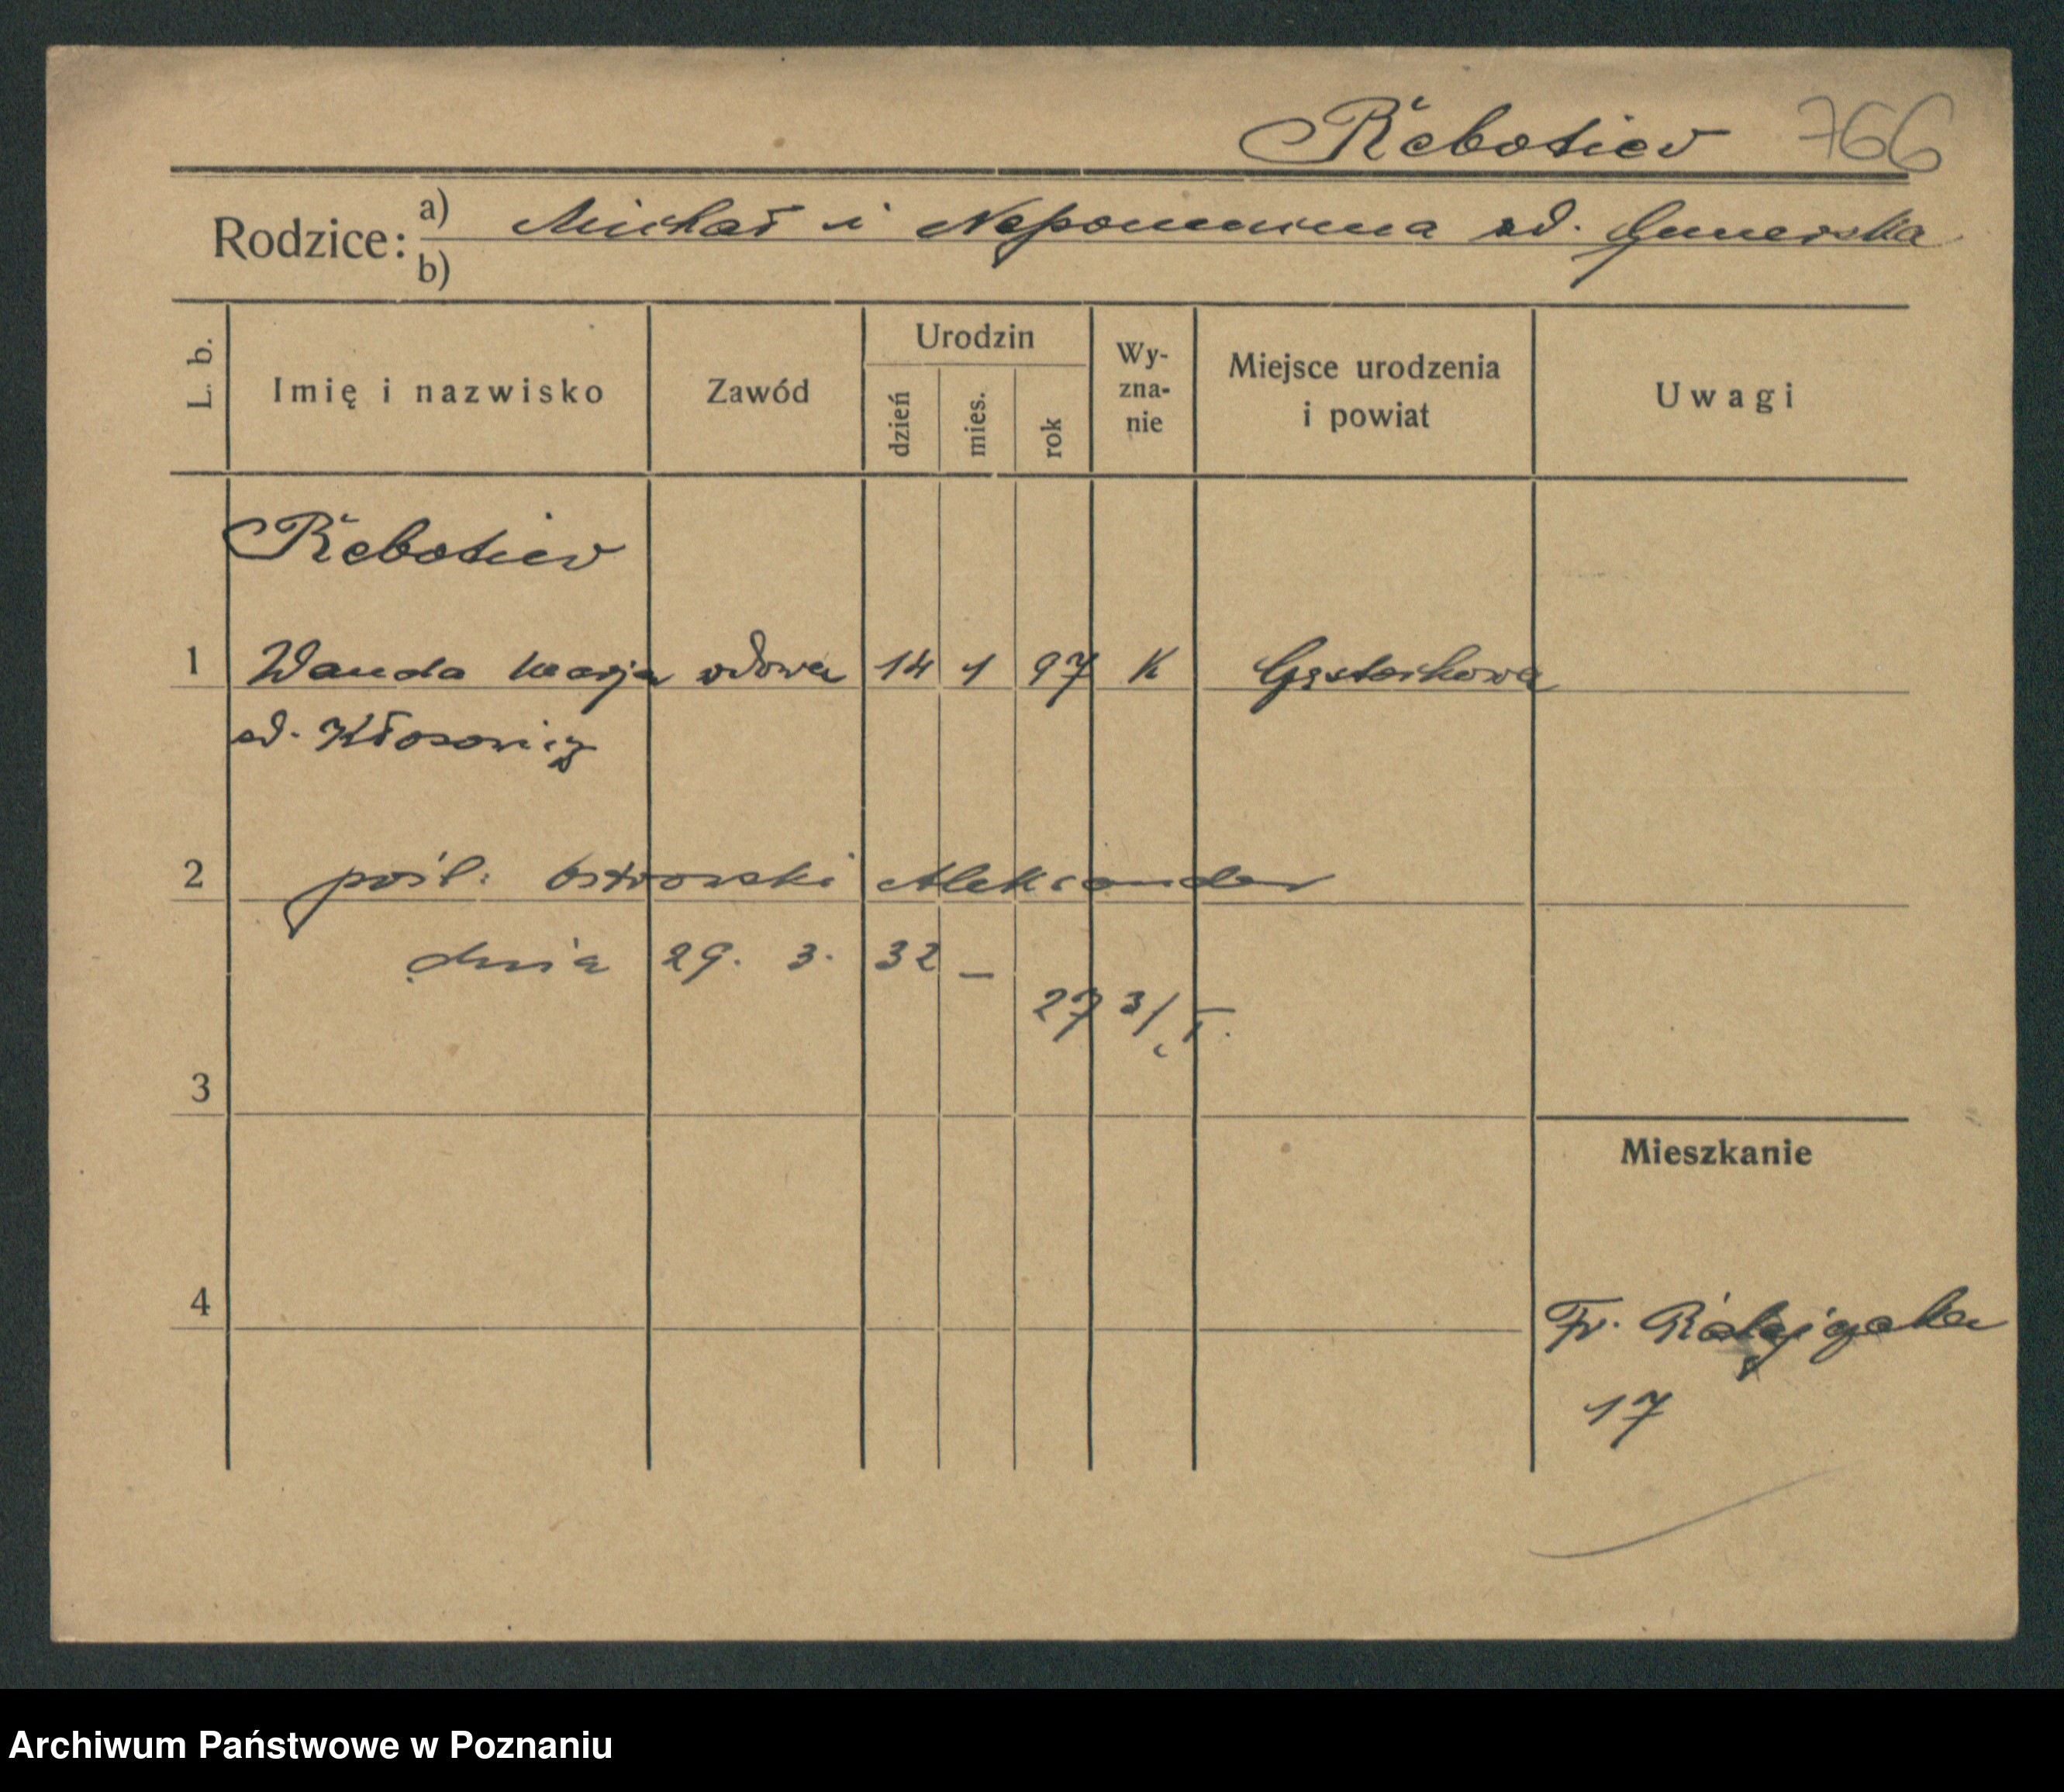 Řebotiev 766
Rodzice: a) Michał i Nepomucena od.
b)
L. b.
Imię i nazwisko
Zawód
Urodzin
dzień
mies.
rok
Wy-
zna-
nie
Miejsce urodzenia
i powiat
Uwagi
Řebotiev
1 Wanda Marja wdowa 14 1 97 K
od. Kłosowicz
2 pośl. Ostrowski Aleksander
dnia 29. 3. 32 –
27 3/
3
Mieszkanie
4
Fr. Ratajczaka
17
Archiwum Państwowe w Poznaniu